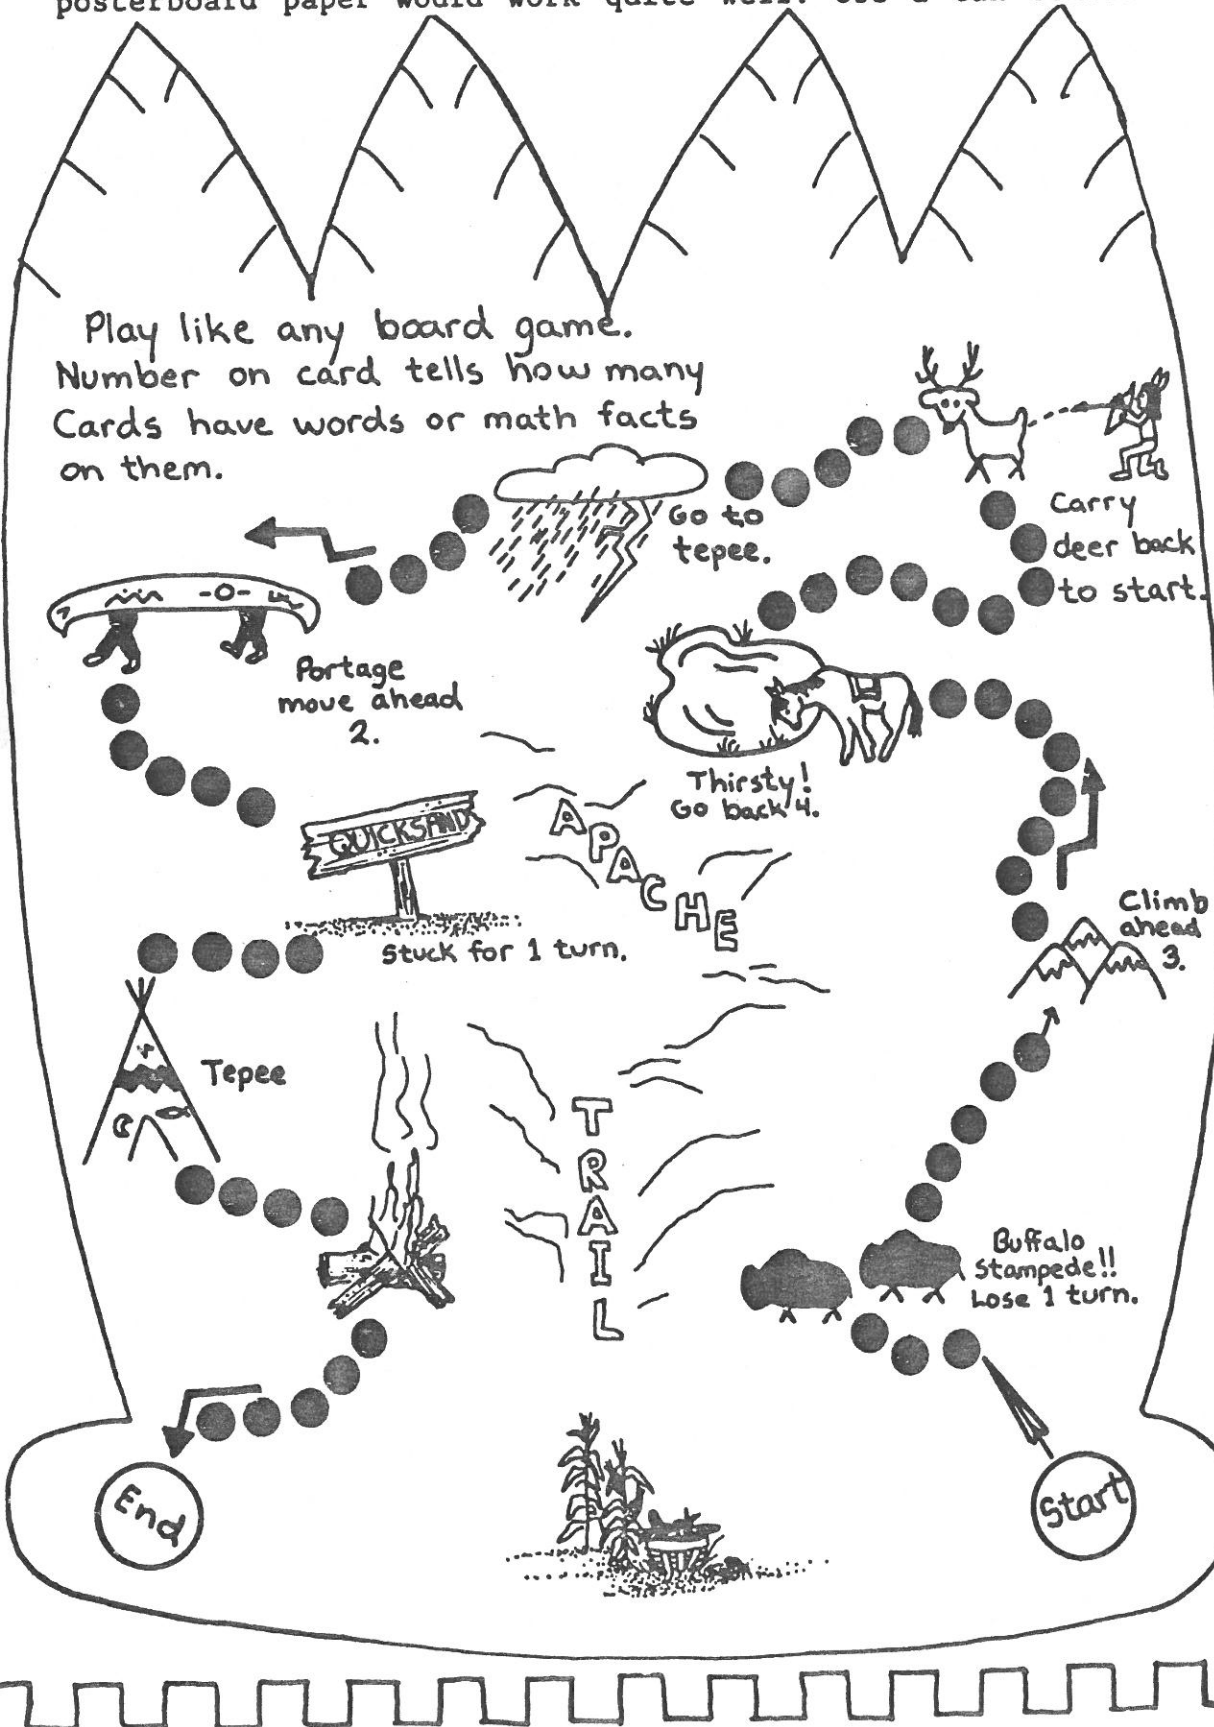 posterboard paper would work quite well. Use a
Play like any board game.
Number on card tells how many
Cards have words or math facts
on them.
Go to
tepee.
Carry
deer back
to start.
Portage
move ahead
2.
Thirsty!
Go back 4.
QUICKSAND
APACHE
Climb
ahead
3.
Stuck for 1 turn.
Tepee
TRAIL
Buffalo
Stampede!!
Lose 1 turn.
End
Start